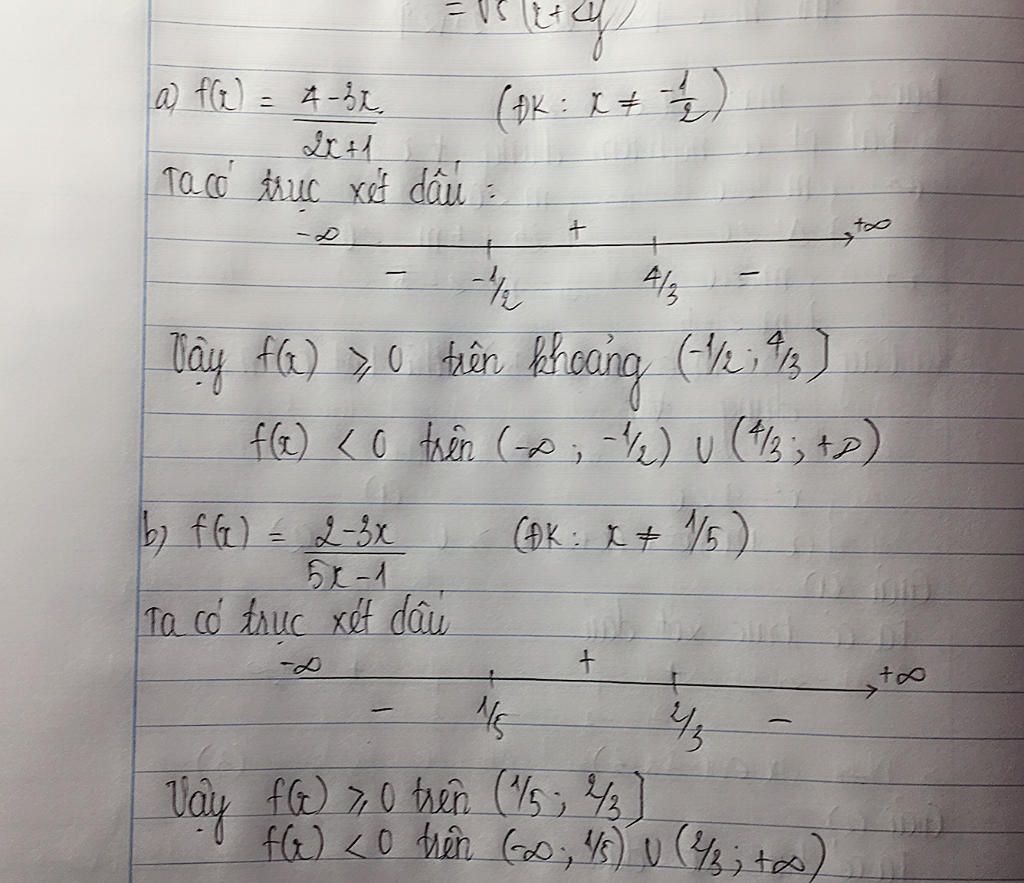 = √5 (x+2y)
a) f(x) = (4-3x)/(2x+1) (ĐK: x ≠ -1/2)
Ta có trục xét dấu:
-∞ + +∞
- -1/2 4/3 -
Vậy f(x) ⩾ 0 trên khoảng (-1/2; 4/3]
f(x) < 0 trên (-∞; -1/2) ∪ (4/3; +∞)
b) f(x) = (2-3x)/(5x-1) (ĐK: x ≠ 1/5)
Ta có trục xét dấu
-∞ + +∞
- 1/5 2/3 -
Vậy f(x) ⩾ 0 trên (1/5; 2/3]
f(x) < 0 trên (-∞; 1/5) ∪ (2/3; +∞)